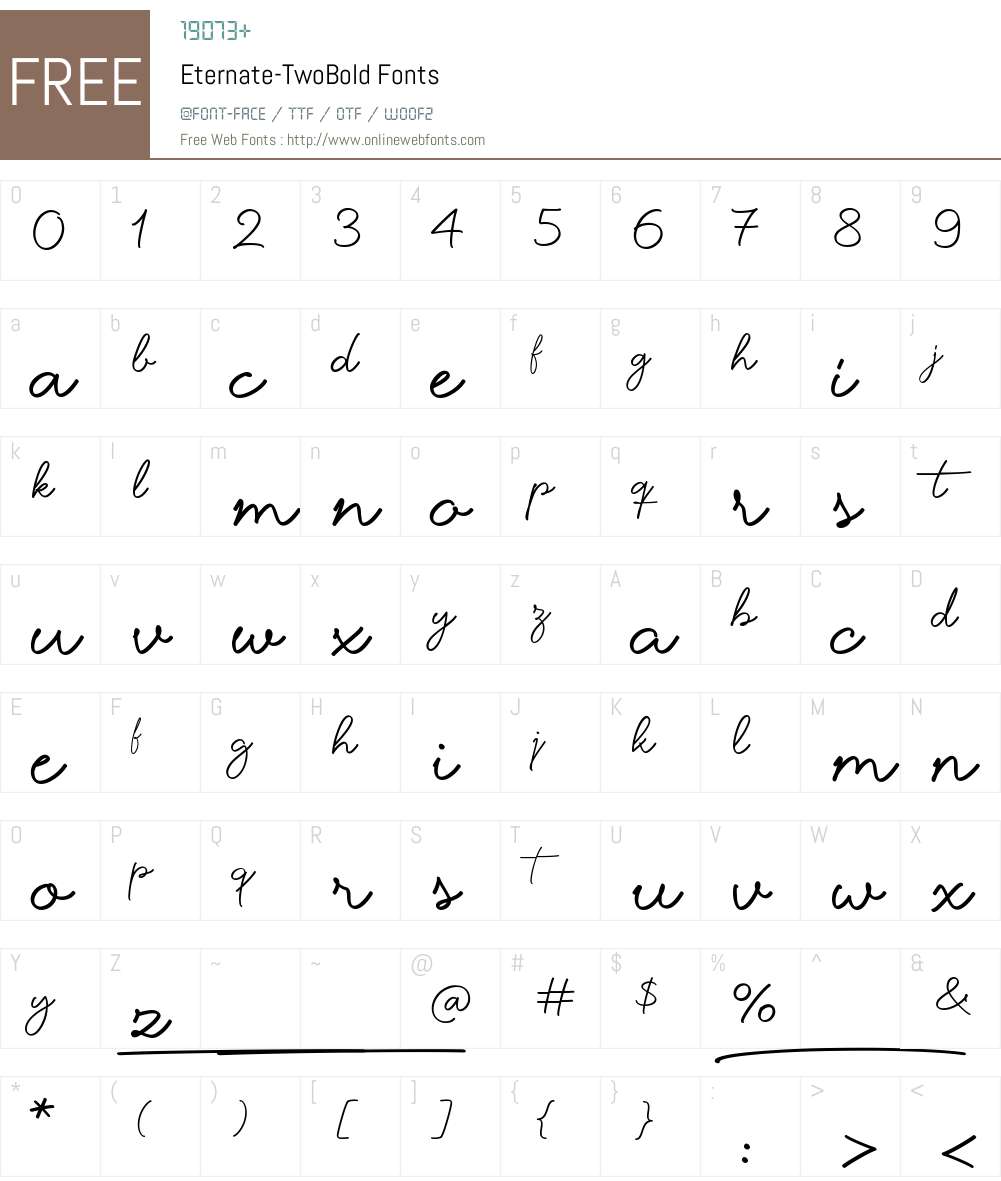 FREE
19073+
Eternate-TwoBold Fonts
@FONT-FACE / TTF / OTF / WOOF2
Free Web Fonts : http://www.onlinewebfonts.com
0 1 2 3 4 5 6 7 8 9
0 1 2 3 4 5 6 7 8 9
a b c d e f g h i j
a b c d e f g h i j
k l m n o p q r s t
k l m n o p q r s t
u v w x y z A B C D
u v w x y z a b c d
E F G H I J K L M N
e f g h i j k l m n
O P Q R S T U V W X
o p q r s t u v w x
Y Z ~ ~ @ # $ % ^ &
y z @ # $ % &
* ( ) [ ] { } : > <
* ( ) [ ] { } : > <